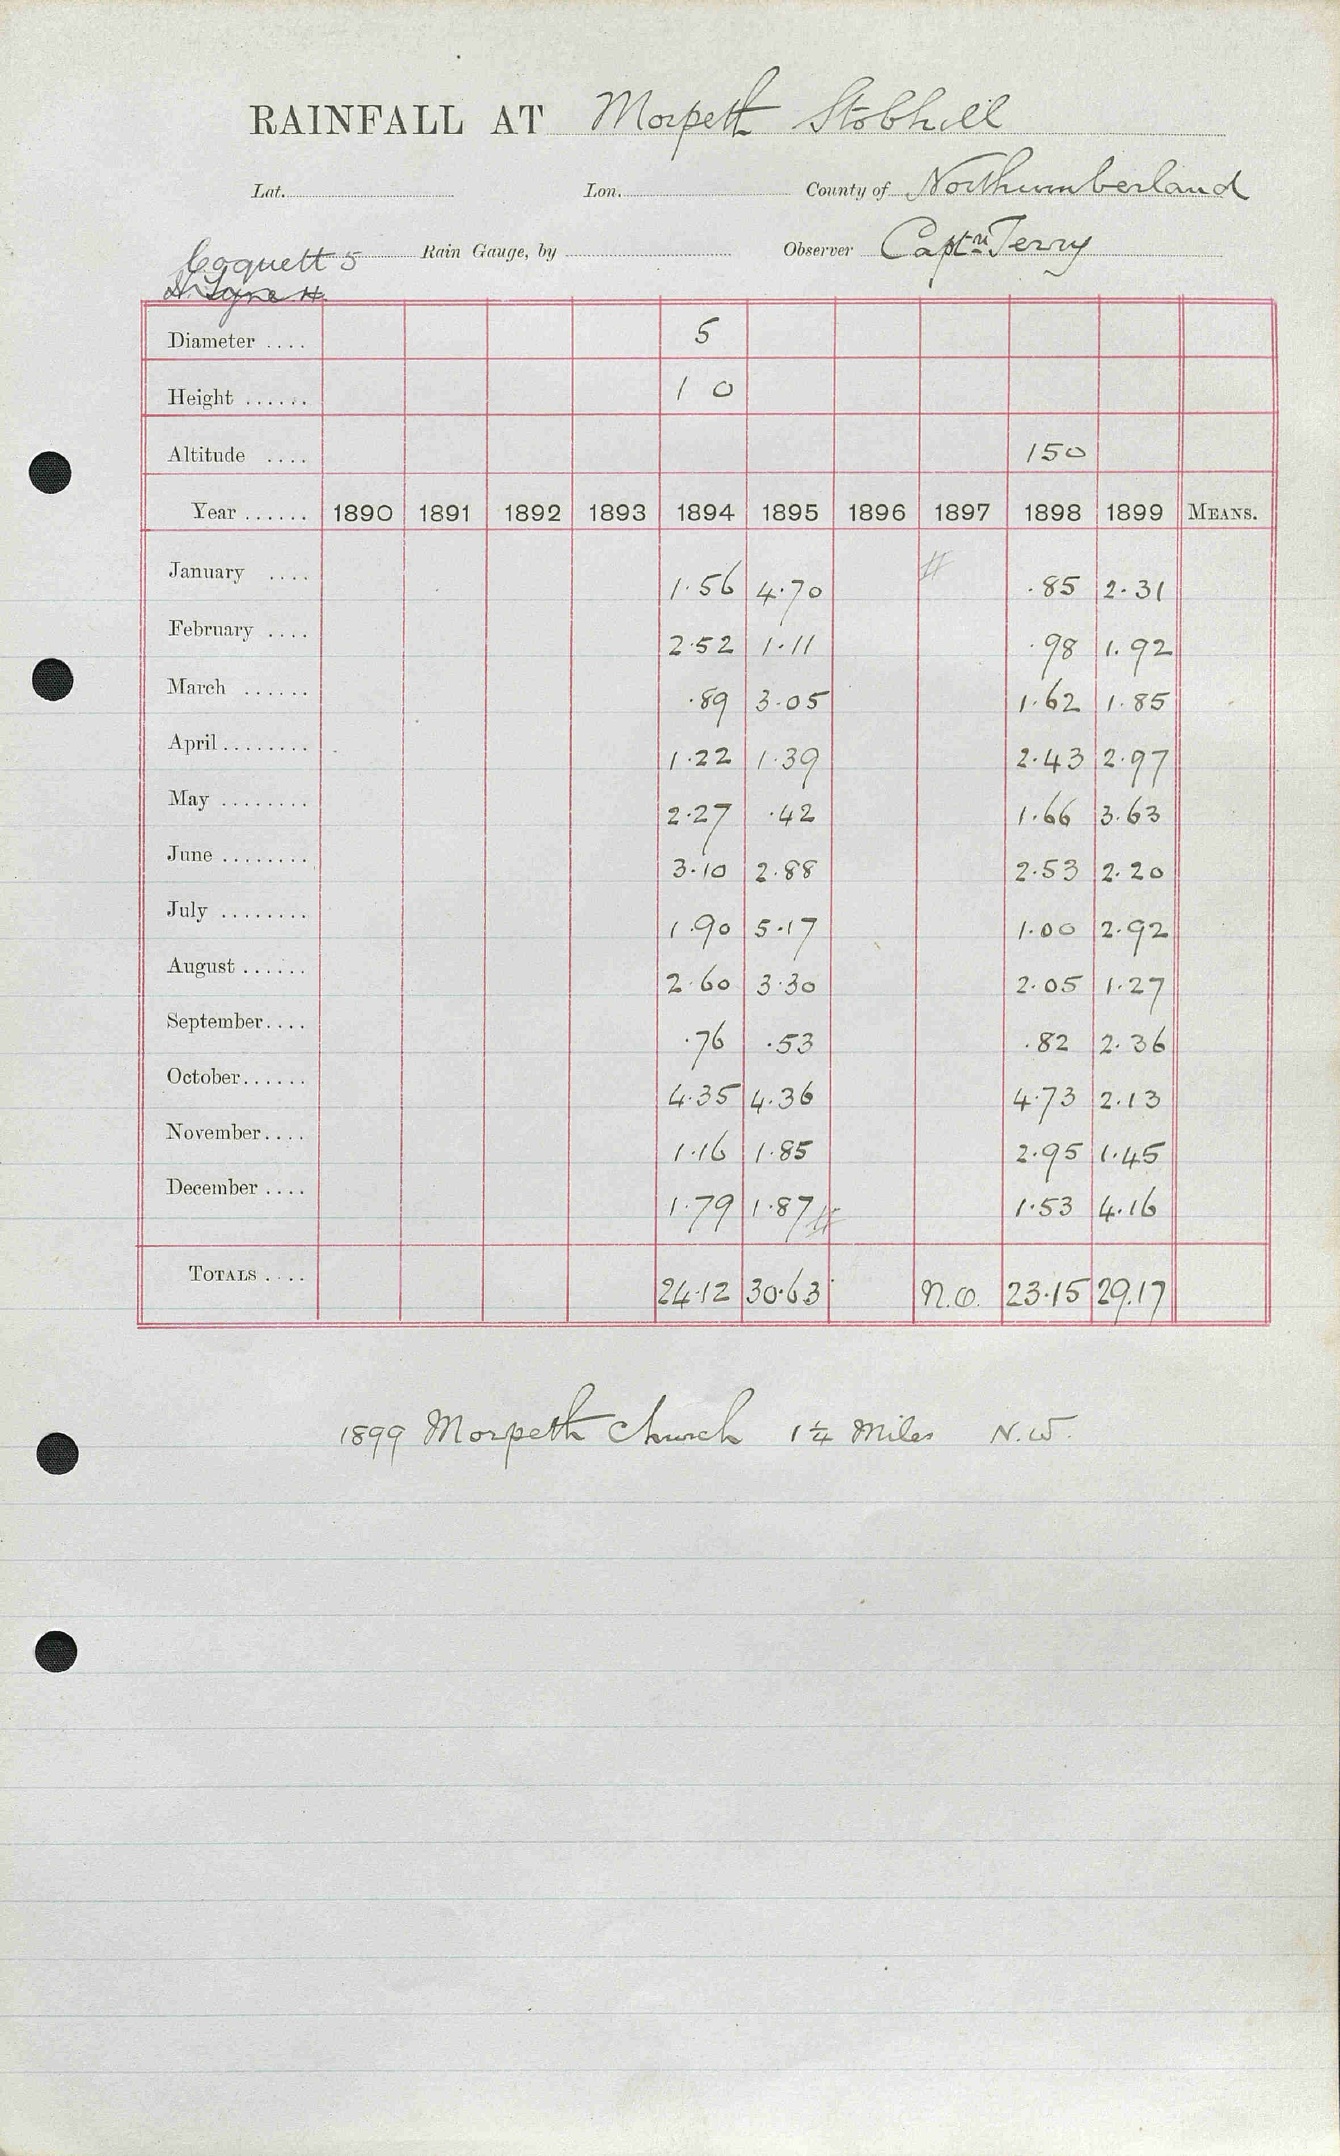 RAINFALL AT Morpeth Stobhill
Lat. Lon. County of Northumberland
Coquett 5 Rain Gauge, by Observer Captn. Terry
Tyne
Diameter .... 5
Height ...... 1 0
Altitude .... 150
Year ...... 1890 1891 1892 1893 1894 1895 1896 1897 1898 1899 MEANS.
January .... 1.56 4.70 # .85 2.31
February .... 2.52 1.11 .98 1.92
March ...... .89 3.05 1.62 1.85
April ........ 1.22 1.39 2.43 2.97
May ........ 2.27 .42 1.66 3.63
June ........ 3.10 2.88 2.53 2.20
July ........ 1.90 5.17 1.00 2.92
August ...... 2.60 3.30 2.05 1.27
September .... .76 .53 .82 2.36
October ...... 4.35 4.36 4.73 2.13
November .... 1.16 1.85 2.95 1.45
December .... 1.79 1.87 # 1.53 4.16
TOTALS .... 24.12 30.63 N.O. 23.15 29.17
1899 Morpeth Church 1¼ Miles N.W.